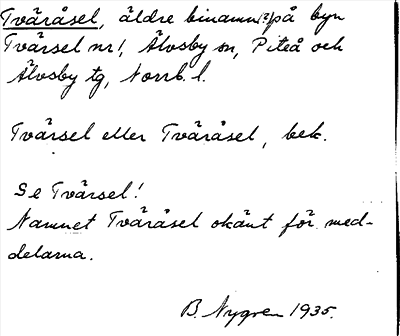 Tväråsel, äldre binamn(?) på byn
Tvärsel nr 1, Älvsby sn, Piteå och
Älvsby tg, Norrb. l.
Tvärsel eller Tväråsel, bek.
Se Tvärsel!
Namnet Tväråsel okänt för med-
delarna.
B. Nygren 1935.